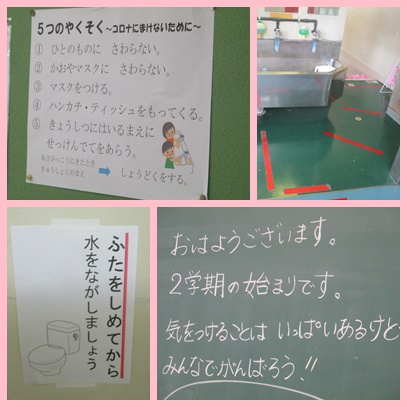 5つのやくそく~コロナにまけないために~
① ひとのものに さわらない。
② かおやマスクに さわらない。
③ マスクをつける。
④ ハンカチ・ティッシュをもってくる。
⑤ きょうしつにはいるまえに
せっけんでてをあらう。
あさがっこうにきたとき
きゅうしょくのまえ
しょうどくをする。
ふたをしめてから
水をながしましょう
おはようございます。
2学期の始まりです。
気をつけることは いっぱいあるけど
みんなでがんばろう!!